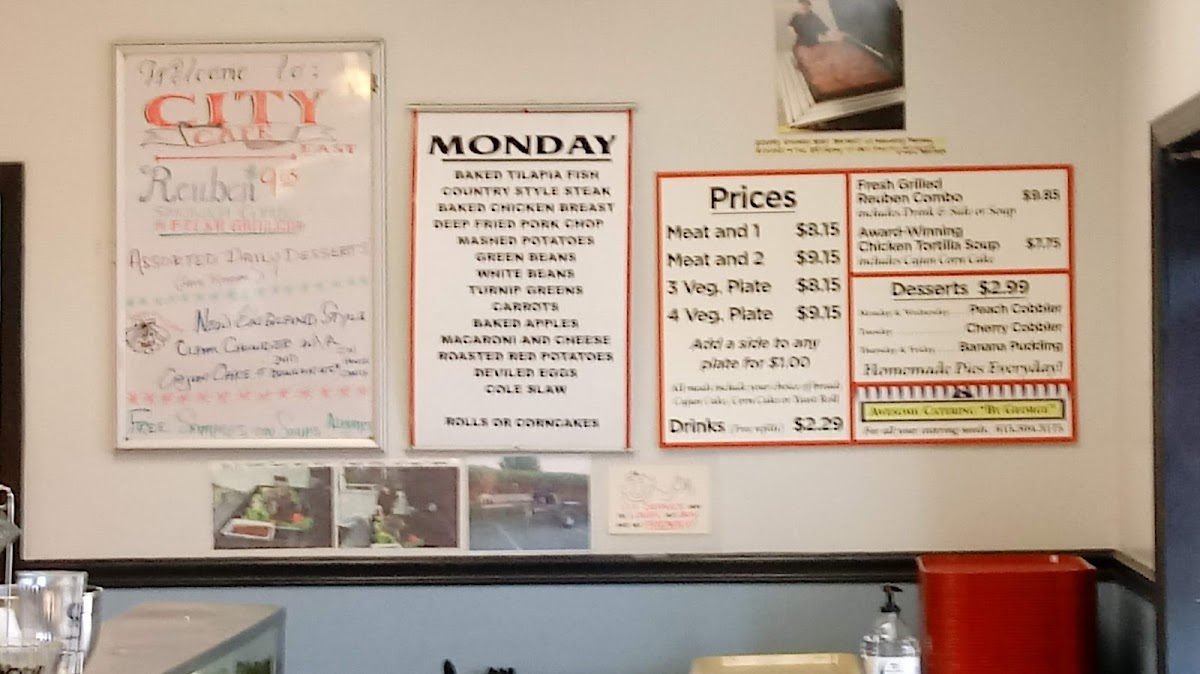 Welcome to:
CITY
CAFE
EAST
Reuben 9.85
ASSORTED DAILY DESSERTS
NEW ENGLAND STYLE
CLAM CHOWDER
FREE SAMPLES ON SOUPS ALWAYS
MONDAY
BAKED TILAPIA FISH
COUNTRY STYLE STEAK
BAKED CHICKEN BREAST
DEEP FRIED PORK CHOP
MASHED POTATOES
GREEN BEANS
WHITE BEANS
TURNIP GREENS
CARROTS
BAKED APPLES
MACARONI AND CHEESE
ROASTED RED POTATOES
DEVILED EGGS
COLE SLAW
ROLLS OR CORNCAKES
Prices
Meat and 1 $8.15
Meat and 2 $9.15
3 Veg. Plate $8.15
4 Veg. Plate $9.15
Add a side to any
plate for $1.00
All meals include your choice of bread:
Cajun Cake, Corn Cake or Yeast Roll
Drinks (Free refills) $2.29
Fresh Grilled
Reuben Combo $9.85
includes Drink & Side or Soup
Award-Winning
Chicken Tortilla Soup $7.75
includes Cajun Corn Cake
Desserts $2.99
Monday & Wednesday Peach Cobbler
Tuesday Cherry Cobbler
Thursday & Friday Banana Pudding
Homemade Pies Everyday!
AWESOME CATERING "BY GEORGE"
For all your catering needs.